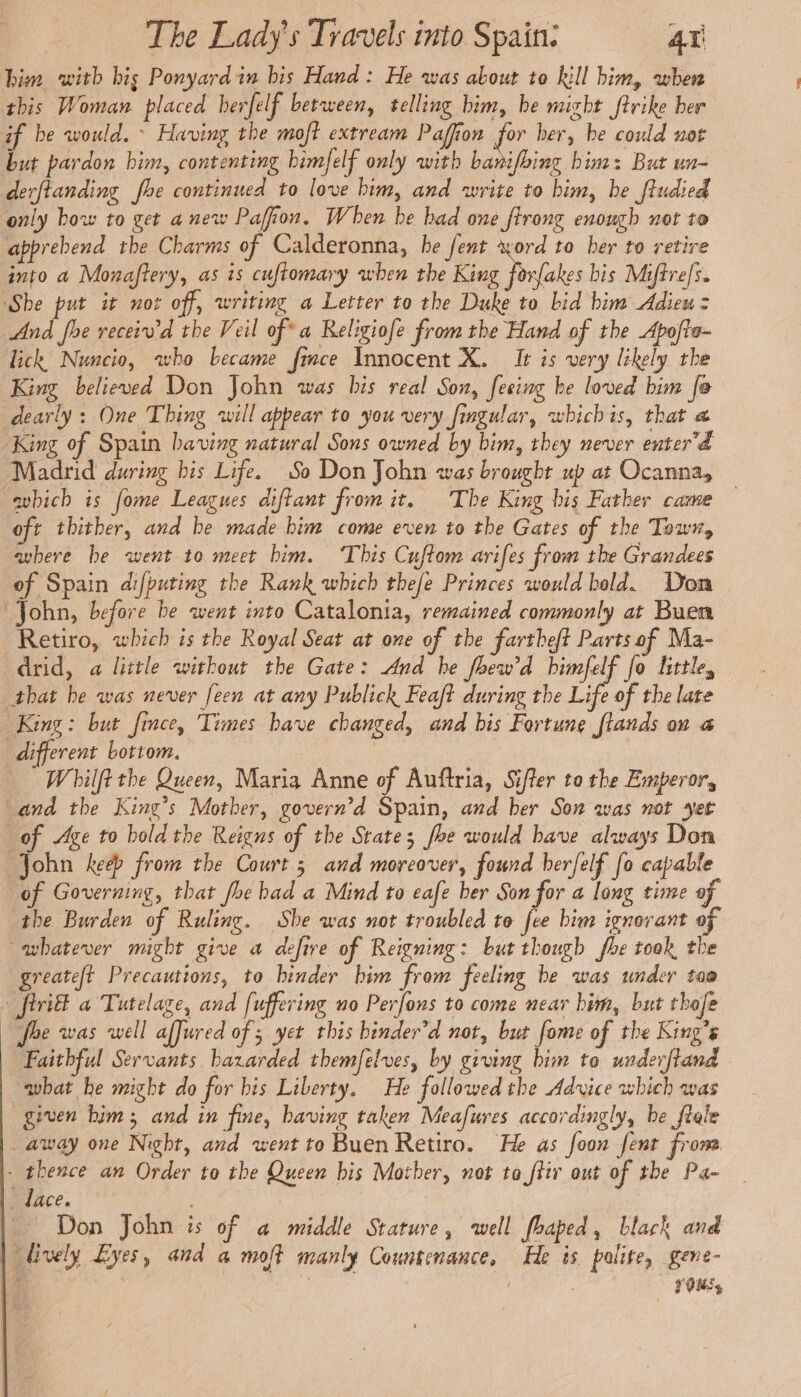 The Lady's Travels into Spain. 41
him with his Ponyard in his Hand: He was about to kill him, when
this Woman placed herſelf between, telling him, he might ſtrike her
if he would. Having the moſt extream Paſſion for her, he could not
but pardon him, contenting himſelf only with baniſhing him: But un-
derſtanding ſhe continued to love him, and write to him, he ſtudied
only how to get a new Paſſion. When he had one ſtrong enough not to
apprehend the Charms of Calderonna, he ſent word to her to retire
into a Monaſtery, as is cuſtomary when the King forſakes his Miſtreſs.
She put it not off, writing a Letter to the Duke to bid him Adieu:
And ſhe receiv'd the Veil of a Religioſe from the Hand of the Apoſto-
lick Nuncio, who became ſince Innocent X. It is very likely the
King believed Don John was his real Son, ſeeing he loved him ſo
dearly: One Thing will appear to you very ſingular, which is, that a
King of Spain having natural Sons owned by him, they never enter'd
Madrid during his Life. So Don John was brought up at Ocanna,
which is ſome Leagues diſtant from it. The King his Father came
oft thither, and he made him come even to the Gates of the Town,
where he went to meet him. This Cuſtom ariſes from the Grandees
of Spain diſputing the Rank which theſe Princes would hold. Don
John, before he went into Catalonia, remained commonly at Buen
Retiro, which is the Royal Seat at one of the fartheſt Parts of Ma-
drid, a little without the Gate: And he ſhew'd himſelf ſo little,
that he was never ſeen at any Publick Feaſt during the Life of the late
King: but ſince, Times have changed, and his Fortune ſtands on a
different bottom.
Whilſt the Queen, Maria Anne of Auſtria, Siſter to the Emperor,
and the King's Mother, govern'd Spain, and her Son was not yet
of Age to hold the Reigns of the State; ſhe would have always Don
John keep from the Court; and moreover, found herſelf ſo capable
of Governing, that ſhe had a Mind to eaſe her Son for a long time of
the Burden of Ruling. She was not troubled to ſee him ignorant of
whatever might give a deſire of Reigning: but though ſhe took the
greateſt Precautions, to hinder him from feeling he was under too
ſtrict a Tutelage, and ſuffering no Perſons to come near him, but thoſe
ſhe was well aſſured of; yet this hinder'd not, but ſome of the King's
Faithful Servants hazarded themſelves, by giving him to underſtand
what he might do for his Liberty. He followed the Advice which was
given him; and in fine, having taken Meaſures accordingly, he ſtole
away one Night, and went to Buen Retiro. He as ſoon ſent from
thence an Order to the Queen his Mother, not to ſtir out of the Pa-
lace.
Don John is of a middle Stature, well ſhaped, black and
lively Eyes, and a moſt manly Countenance. He is polite, gene-
rous,